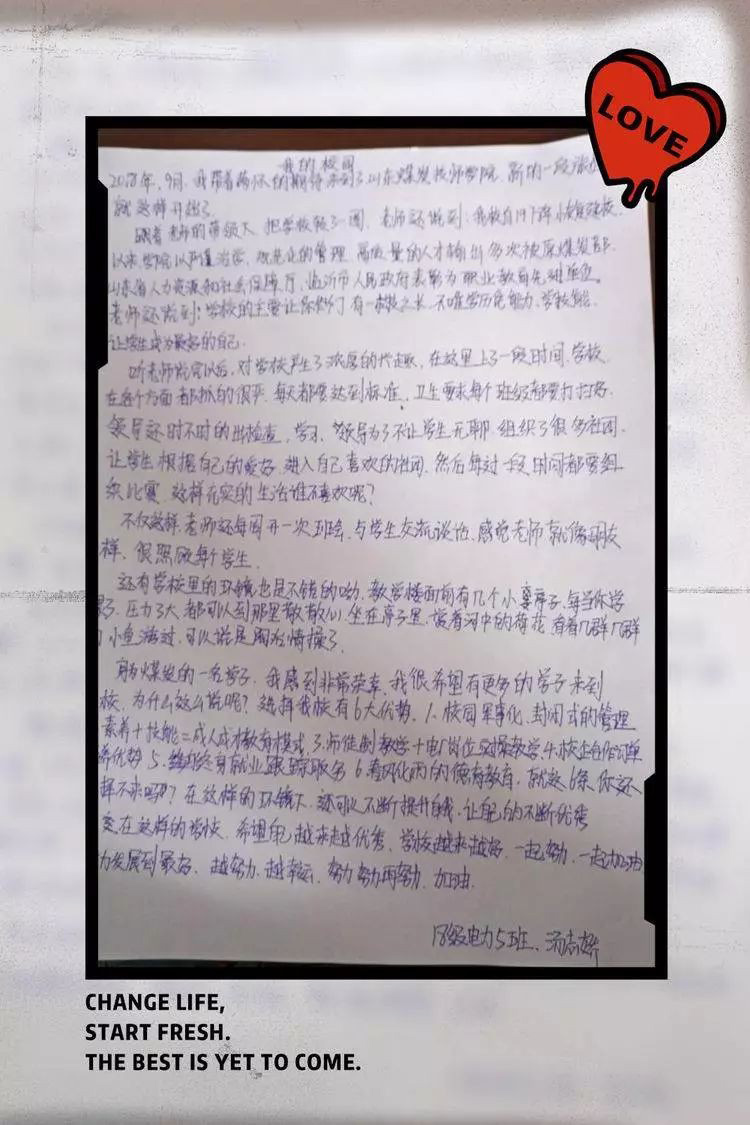 LOVE
我的校园
2018年,9月.我带着满怀的期待来到了山东煤炭技师学院.新的一段旅
就这样开始了
跟着老师的带领下.把学校转了一圈.老师还说到:我校自1973年
以来学院以严谨治学、规范的管理.高质量的人才输出多次被原煤炭部.
山东省人力资源和社会保障厅、临沂市人民政府表彰为职业教育先进单位.
老师还说到:学校的主要让你们有一技之长.不唯学历凭能力、学技能.
让学生成为最好的自己.
听老师说完以后,对学校产生了浓厚的兴趣,在这里上了一段时间.学校
在各个方面都抓的很严.每天都要达到标准、卫生要求每个班级都要打扫好.
领导还时不时的出检查,学习、领导为了不让学生无聊.组织了很多社团.
让学生根据自己的爱好.进入自己喜欢的社团.然后每过一段时间都要组
织比赛.这样充实的生活谁不喜欢呢?
不仅这样.老师还每周开一次班会、与学生交流谈话.感觉老师就像朋友
样、很照顾每个学生.
还有学校里的环境也是不错的呦.教学楼面前有几个小亭子.每当你学
压力了大.都可以到那里散散心.坐在亭子里.赏着河中的荷花.有着几群几群
小鱼游过.可以说是陶冶情操了.
身为煤炭的一名学子.我感到非常荣幸.我很希望有更多的学子来到
校.为什么这么说呢?选择我校有6大优势. 1.校园军事化、封闭式的管理
素养+技能=成人成才教育模式 3.师徒制教学+电厂岗位实操教学.4.校企合作订单
养优势 5.终身就业跟踪服务 6.春风化雨的德育教育.就这6条.你还
择不来吗?在这样的环境下.还可以不断提升自我.让自己的不断优秀
爱在这样的学校.希望自己越来越优秀.学校越来越好.一起努力.一起加油
力发展到最好.越努力.越幸运.努力努力再努力.加油.
18级电力5班、汤志
CHANGE LIFE,
START FRESH.
THE BEST IS YET TO COME.